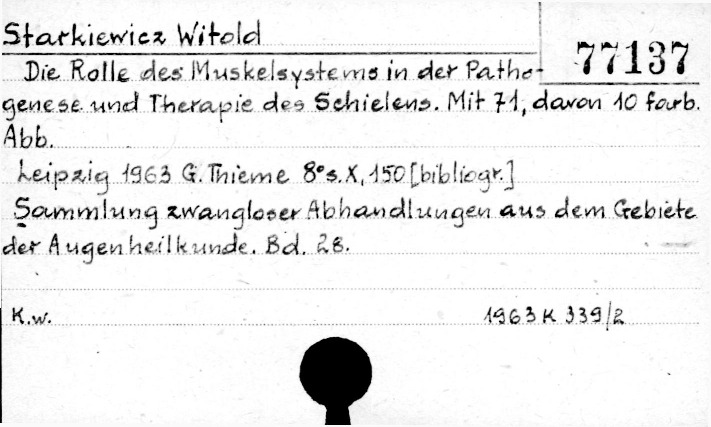 Starkiewicz Witold
77137
Die Rolle des Muskelsystems in der Patho-
genese und Therapie des Schielens. Mit 71, davon 10 farb.
Abb.
Leipzig 1963 G. Thieme 8° s. X, 150 [bibliogr.]
Sammlung zwangloser Abhandlungen aus dem Gebiete
der Augenheilkunde. Bd. 28.
K.w. 1963 K 339/2